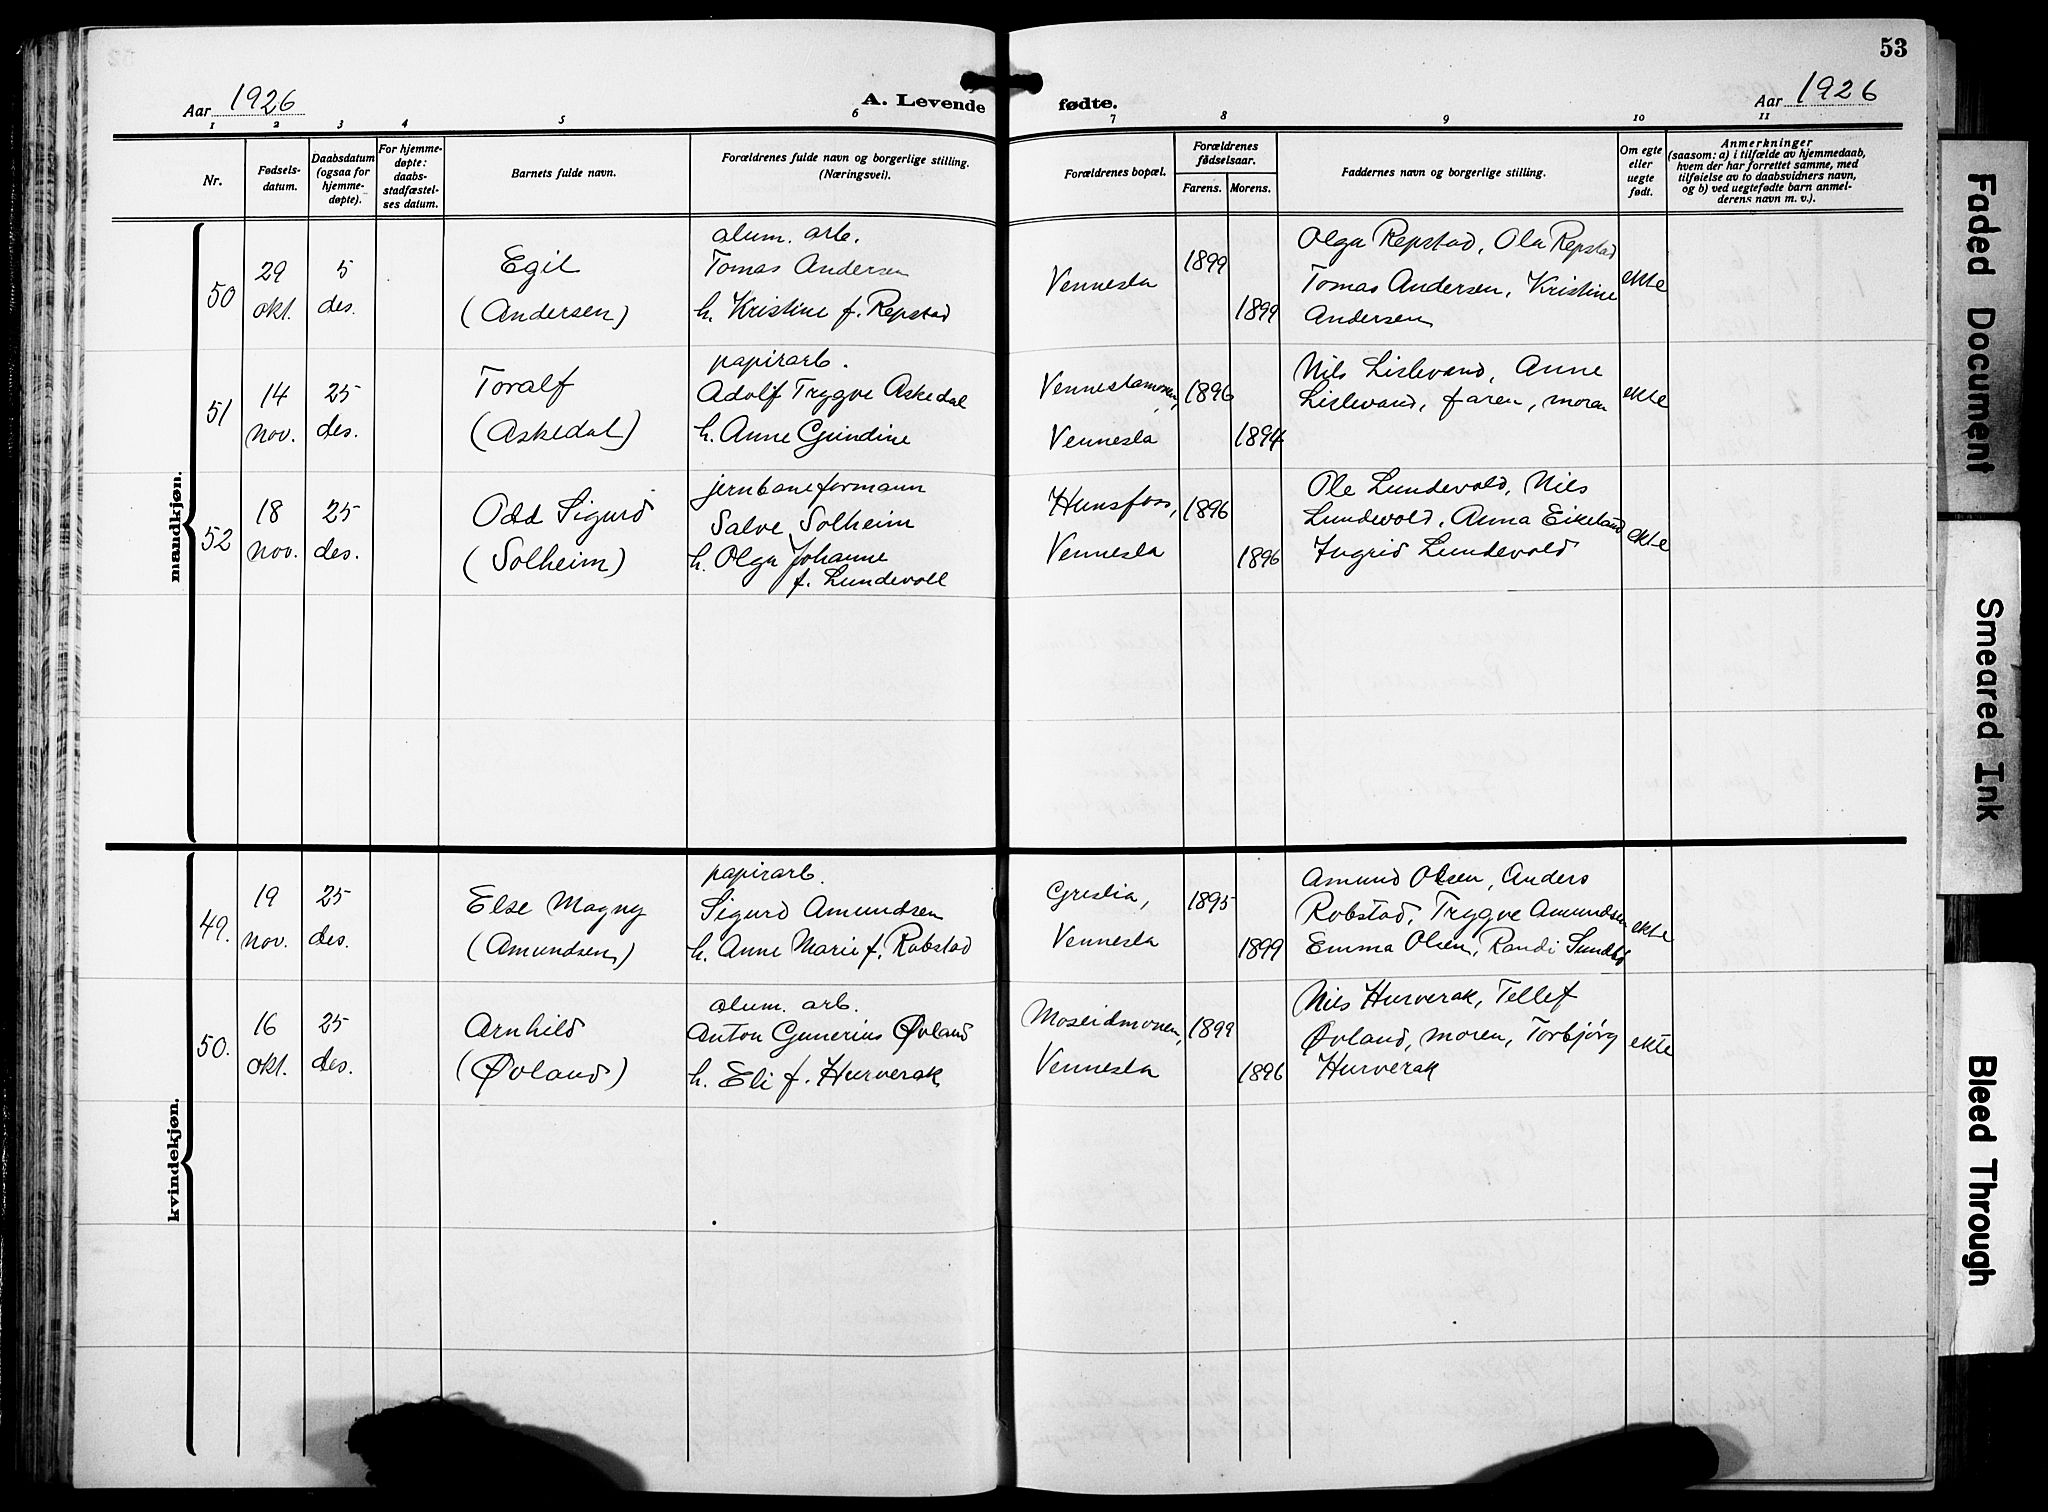 53
Aar 1926
A. Levende fødte.
Aar 1926
1 2 3 4 5 6 7 8 9 10 11
Nr.
Fødsels-
datum.
Daabsdatum
(ogsaa for
hjemme-
døpte).
For hjemme-
døpte:
daabs-
stadfæstel-
ses datum.
Barnets fulde navn.
Forældrenes fulde navn og borgerlige stilling.
(Næringsvei).
Forældrenes bopæl.
Forældrenes
fødselsaar.
Farens. Morens.
Faddernes navn og borgerlige stilling.
Om egte
eller
uegte
født.
Anmerkninger
(saasom: a) i tilfælde av hjemmedaab,
hvem der har forrettet samme, med
tilføielse av to daabsvidners navn,
og b) ved uegtefødte barn anmel-
derens navn m. v.).
mandkjøn.
50
29
okt.
5
des.
Egil
(Andersen)
alum. arb.
Tomas Andersen
h. Kristine f. Repstad
Vennesla
1899
1899
Olga Repstad, Ola Repstad
Tomas Andersen, Kristine
Andersen
ekte
51
14
nov.
25
des.
Toralf
(Askedal)
papirarb.
Adolf Trygve Askedal
h. Anne Gundine
Venneslamoen,
Vennesla
1896
1894
Nils Lislevand, Anne
Lislevand, faren, moren
ekte
52
18
nov.
25
des.
Odd Sigurd
(Solheim)
jernbaneformann
Salve Solheim
h. Olga Johanne
f. Lundevold
Hunsfoss,
Vennesla
1896
1896
Ole Lundevold, Nils
Lundevold, Anna Eikeland
Ingrid Lundevold
ekte
kvindekjøn.
49.
19
nov.
25
des.
Else Magny
(Amundsen)
papirarb.
Sigurd Amundsen
h. Anne Marie f. Robstad
Greslia,
Vennesla
1895
1899
Amund Olsen, Anders
Robstad, Trygve Amundsen
Emma Olsen, Randi Sundbø
ekte
50.
16
okt.
25
des.
Arnhild
(Øvland)
alum. arb.
Anton Gunerius Øvland
h. Eli f. Hurverak
Moseidmonen,
Vennesla
1899
1896
Nils Hurverak, Tellef
Øvland, moren, Torbjørg
Hurverak
ekte
Faded Document
Smeared Ink
Bleed Through